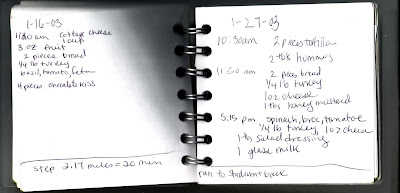 1-16-03
11:30am cottage cheese
1 cup
3 oz fruit
2 pieces bread
1/4 lb turkey
basil, tomato, feta
4 pieces chocolate kiss
step 2.17 miles = 20 min
1-27-03
10:30am 2 pieces tortilla
2 tbs hummus
11:50 am 2 pieces bread
1/4 lb turkey
1 oz cheese
1 tbs honey mustard
5:15 pm spinach, broc, tomatoe
1/4 lb turkey, 1 oz cheese
1 tbs salad dressing
1 glass milk
ran to student back